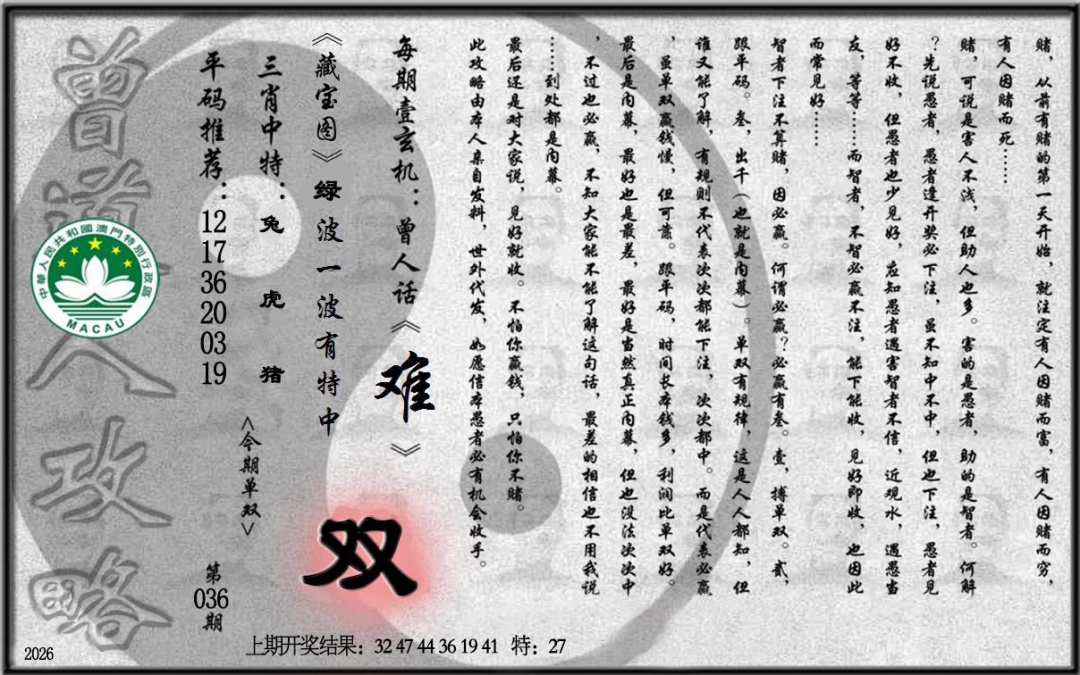 赌，从前有赌的第一天开始，就注定有人因赌而富，有人因赌而穷，
有人因赌而死……
赌，可说是害人不浅，但助人也多。害的是愚者，助的是智者。何解
？先说愚者，愚者逢开奖必下注，虽不知中不中，但也下注，愚者见
好不收，但愚者也少见好，应知愚者遇害智者不信，近观水，遇愚当
友，等等……而智者，不智必赢不注，能下能收，见好即收，也因此
而常见好……
智者下注不算赌，因必赢。何谓必赢？必赢有叁。壹，搏单双。贰，
跟平码。叁，出千（也就是内幕）。单双有规律，这是人人都知，但
谁又能了解，有规则不代表次次都能下注，次次都中。而是代表必赢
，虽单双赢钱慢，但可靠。跟平码，时间长本钱多，利润比单双好。
最后是内幕，最好也是最差，最好是当然真正内幕，但也没法次次中
，不过也必赢，不知大家能不能了解这句话，最差的相信也不用我说
……到处都是内幕。
最后还是对大家说，见好就收。不怕你赢钱，只怕你不赌。
此攻略由本人亲自发料，世外代发，如愿信本愚者必有机会收手。
每期壹玄机：曾人话《难》
《藏宝图》绿波一波有特中
双
三肖中特：兔 虎 猪
<今期单双>
平码推荐：12 17 36 20 03 19
第036期
曾道人攻略
中華人民共和國澳門特別行政區
MACAU
上期开奖结果：32 47 44 36 19 41 特：27
2026